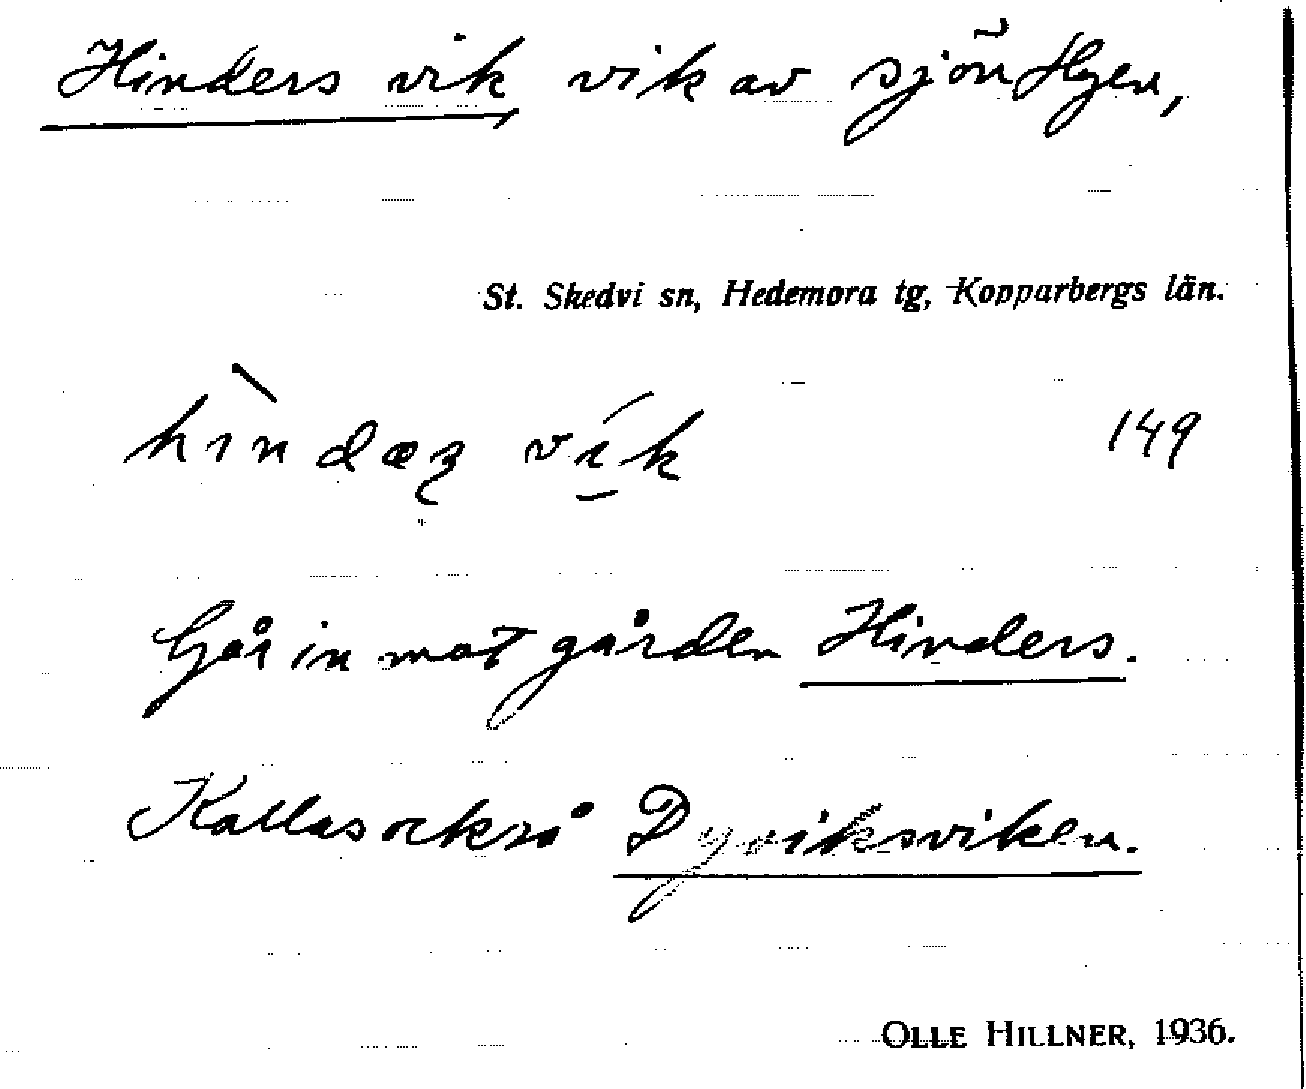 Hinders vik, vik av sjön Hyen,
St. Skedvi sn, Hedemora tg, Kopparbergs län.
hìndæʐ vı́k 149
Går in mot gården Hinders.
Kallas också Dyviksviken.
OLLE HILLNER, 1936.